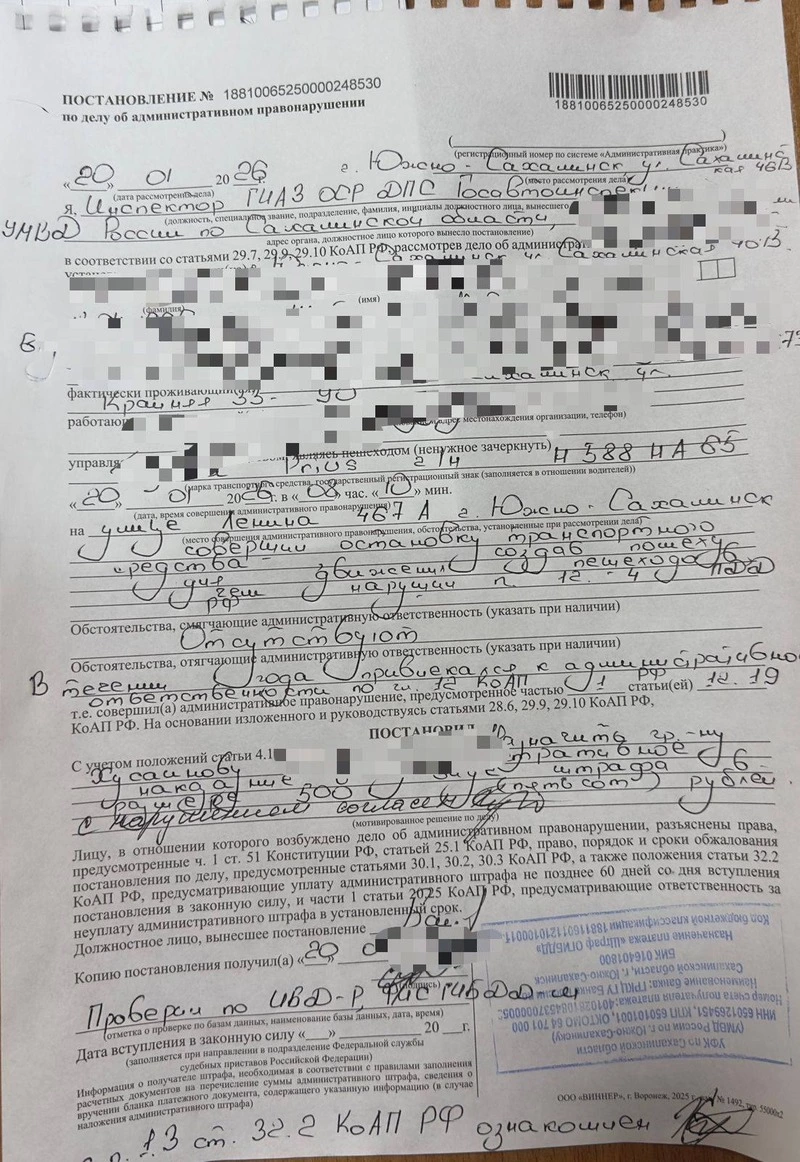 ПОСТАНОВЛЕНИЕ № 18810065250000248530
по делу об административном правонарушении
18810065250000248530
(регистрационный номер по системе «Административная практика»)
«20» 01 2026 г. Южно-Сахалинск ул. Сахалинская 46В
(дата рассмотрения дела) (место рассмотрения дела)
Я, Инспектор ГИАЗ ОСР ДПС Госавтоинспек
(должность, специальное звание, подразделение, фамилия, инициалы должностного лица, вынесшего
УМВД России по Сахалинской области,
адрес органа, должностное лицо которого вынесло постановление)
в соответствии со статьями 29.7, 29.9, 29.10 КоАП РФ, рассмотрев дело об администрат
Сахалинск ул. Сахалинская 40В
(фамилия) (имя)
фактически проживающий
Крайняя 33-
работаю
местонахождения организации, телефон)
управля являясь пешеходом (ненужное зачеркнуть)
Prius г/н Н388НА65
(марка транспортного средства, государственный регистрационный знак (заполняется в отношении водителей))
«20» 01 2026 г. в «08» час. «10» мин.
(дата, время совершения административного правонарушения)
на улице Ленина 467А г. Южно-Сахалинск
(место совершения административного правонарушения, обстоятельства, установленные при рассмотрении дела)
совершил остановку транспортного
средства создав помеху
для движения пешеходов
чем нарушил п. 12.4 ПДД
РФ
Обстоятельства, смягчающие административную ответственность (указать при наличии)
Отсутствуют
Обстоятельства, отягчающие административную ответственность (указать при наличии)
В течении года привлекался к административной
ответственности по гл. 12 КоАП РФ
т.е. совершил(а) административное правонарушение, предусмотренное частью 1 статьи(ей) 12.19
КоАП РФ. На основании изложенного и руководствуясь статьями 28.6, 29.9, 29.10 КоАП РФ,
ПОСТАНОВИЛ
С учетом положений статьи 4.1 назначить гр-ну
Хусаинову административное
наказание в виде штрафа в
размере 500 (пятьсот) рублей.
с нарушением согласен
(мотивированное решение по делу)
Лицу, в отношении которого возбуждено дело об административном правонарушении, разъяснены права,
предусмотренные ч. 1 ст. 51 Конституции РФ, статьей 25.1 КоАП РФ, право, порядок и сроки обжалования
постановления по делу, предусмотренные статьями 30.1, 30.2, 30.3 КоАП РФ, а также положения статьи 32.2
КоАП РФ, предусматривающие уплату административного штрафа не позднее 60 дней со дня вступления
постановления в законную силу, и части 1 статьи 20.25 КоАП РФ, предусматривающие ответственность за
неуплату административного штрафа в установленный срок.
Должностное лицо, вынесшее постановление
Копию постановления получил(а) «20» 0
(подпись)
Проверен по ИБД-Р, ФИС ГИБДД-м
(отметка о проверке по базам данных, наименование базы данных, дата, время)
Дата вступления в законную силу «___» 20 г.
(заполняется при направлении в подразделение Федеральной службы
судебных приставов Российской Федерации)
Информация о получателе штрафа, необходимая в соответствии с правилами заполнения
расчетных документов на перечисление суммы административного штрафа, сведения о
вручении бланка платежного документа, содержащего указанную информацию (в случае
наложения административного штрафа)
УФК по Сахалинской области
(УМВД России по г. Южно-Сахалинску)
ИНН 6501265451, КПП 650101001, ОКТМО 64 701 000
Номер счета получателя платежа:
Наименование банка: ГРКЦ ГУ Банка
Сахалинской области, г. Южно-Сахалинск
БИК 016401800
Назначение платежа «Штраф ОГИБДД»
Код бюджетной классификации 18811601121010001140
ООО «ВИННЕР», г. Воронеж, 2025 г., № 1492, тир. 55000х2
п. 1.3 ст. 32.2 КоАП РФ ознакомлен